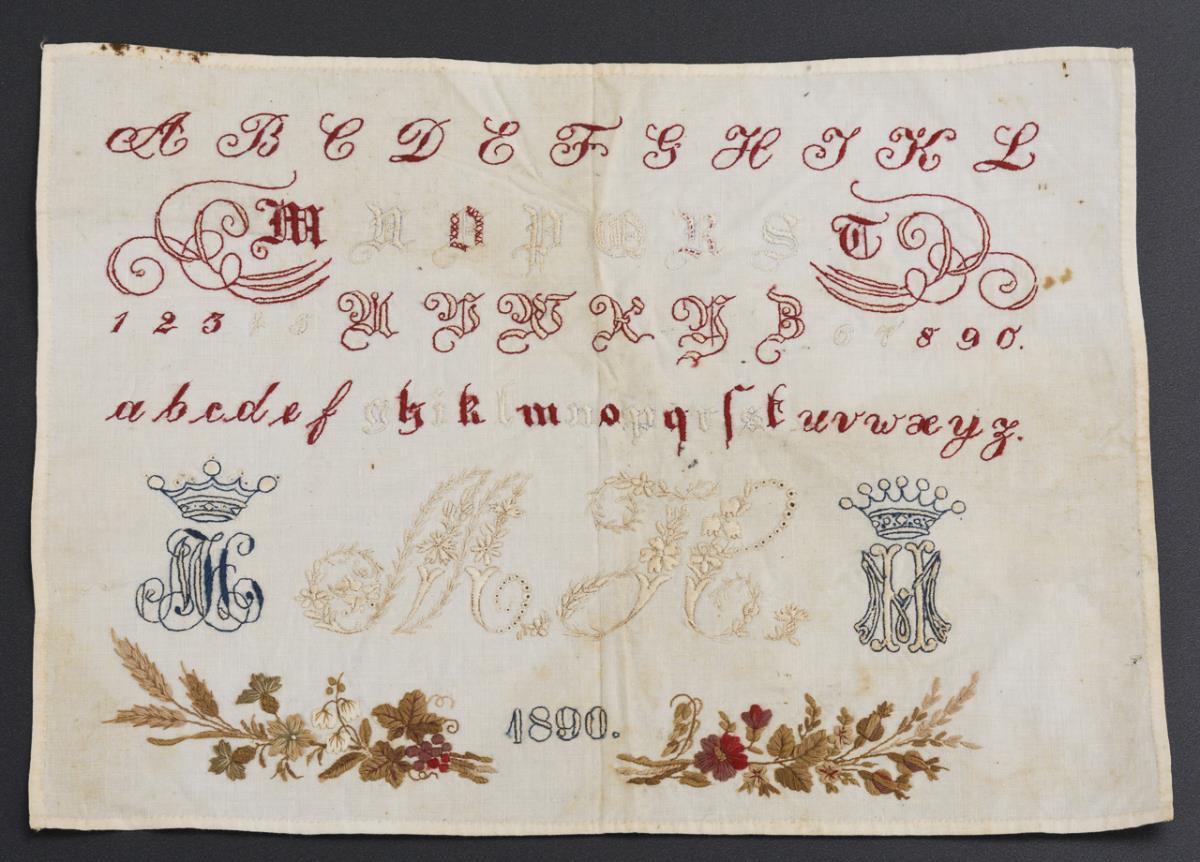 A B C D E F G H I K L
M N O P Q R S T
1 2 3 4 5 U V W X Y Z 6 7 8 9 0.
a b c d e f g h i k l m n o p q r ſ s t u v w x y z.
MH M. H. MH
1890.